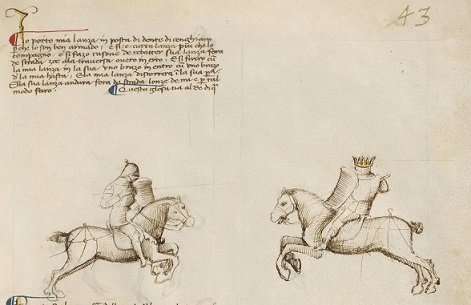 A3
Io porto mia lanza in posta di dente di zenghiaro
che lo son ben armado e si ò curta lanza più che lo
compagno e si fazo rasone de rebater sua lanza fora
de strada, zoè ala traversa, ouero in erto. E si firirò cum
la mia lanza in la sua uno brazo in entro cum uno brazo
de la mia hasta. E la mia lanza discorrerà in la sua persona
E la sua lanza andarà fora de strada lonze de mi e per tal
modo farò.
Questa glosa va al Re di q